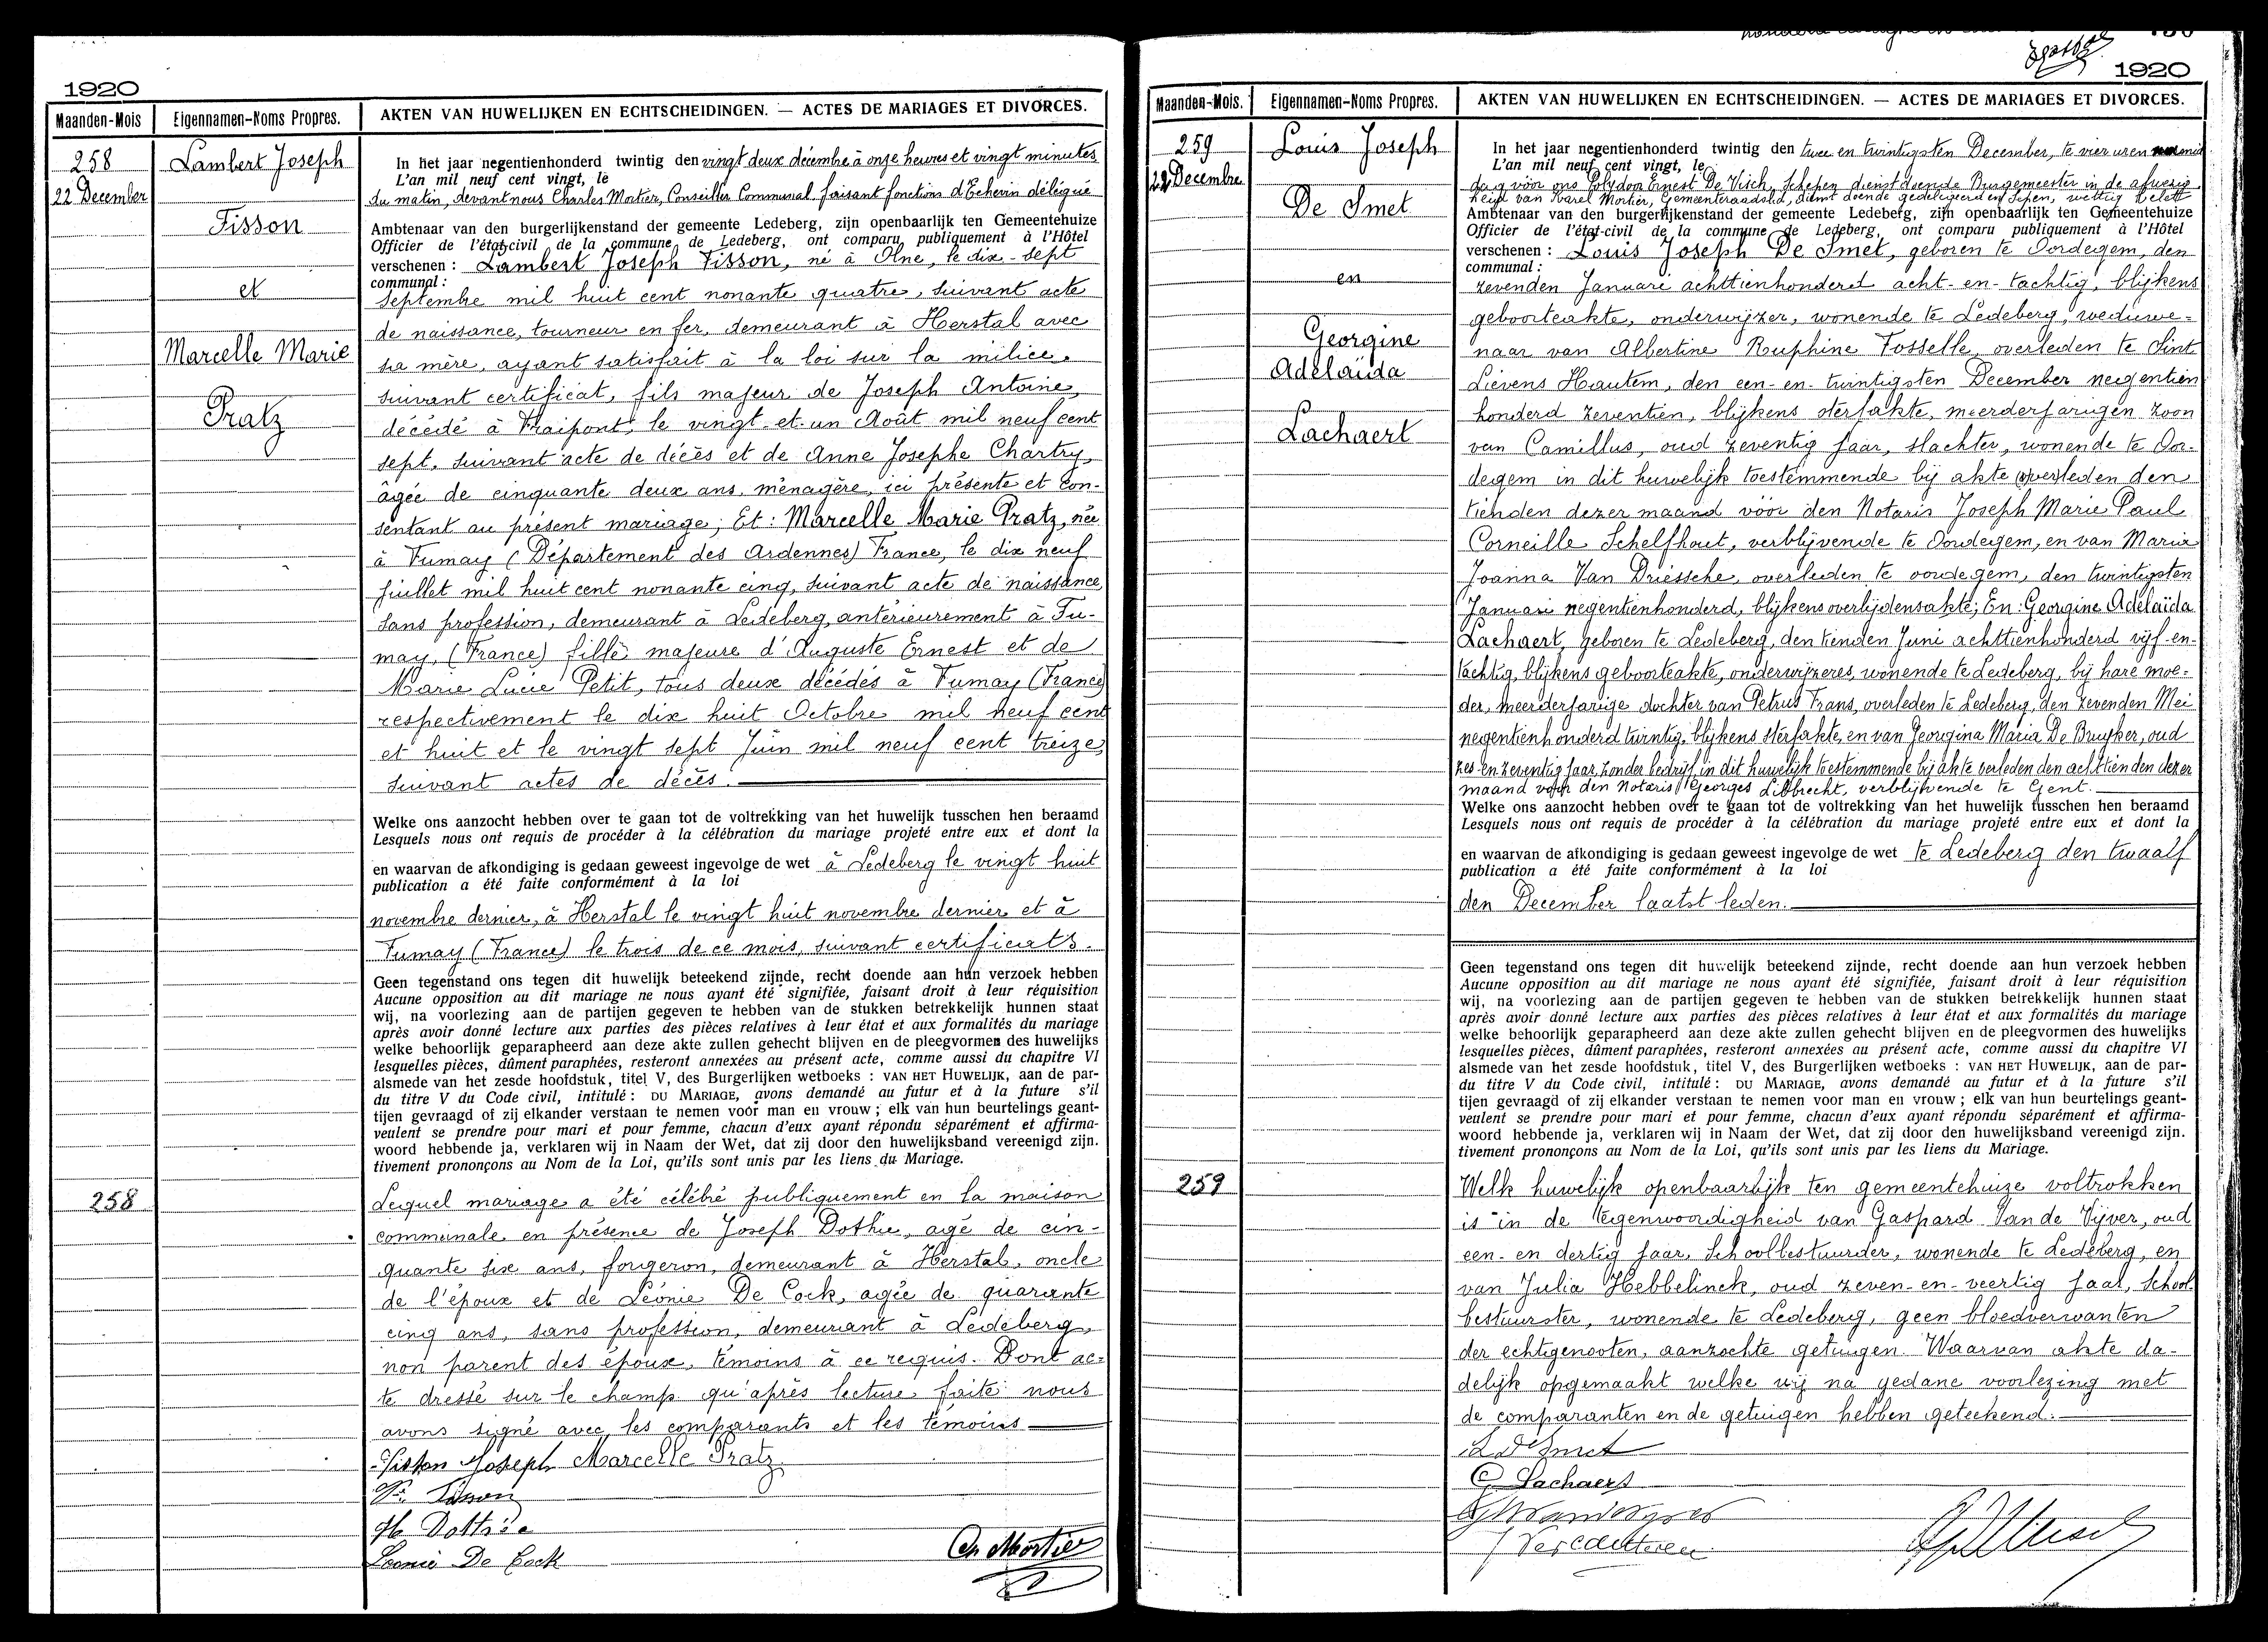 1920
Maanden-Mois
Eigennamen-Noms Propres.
AKTEN VAN HUWELIJKEN EN ECHTSCHEIDINGEN. — ACTES DE MARIAGES ET DIVORCES.
258
22 December
Lambert Joseph
Fisson
et
Marcelle Marie
Pratz
In het jaar negentienhonderd twintig den vingt deux décembre à onze heures et vingt minutes
L'an mil neuf cent vingt, le
du matin, devant nous Charles Mortier, Conseiller Communal faisant fonctions d'Echevin délégué
Ambtenaar van den burgerlijkenstand der gemeente Ledeberg, zijn openbaarlijk ten Gemeentehuize
Officier de l'état-civil de la commune de Ledeberg, ont comparu publiquement à l'Hôtel
verschenen : Lambert Joseph Fisson, né à Olne, le dix-sept
communal :
septembre mil huit cent nonante quatre, suivant acte
de naissance, tourneur en fer, demeurant à Herstal avec
sa mère, ayant satisfait à la loi sur la milice,
suivant certificat, fils majeur de Joseph Antoine,
décédé à Fraipont, le vingt-et-un Août mil neuf cent
sept, suivant acte de décès et de Anne Josephe Chartry,
âgée de cinquante deux ans, ménagère, ici présente et con-
sentant au présent mariage; Et : Marcelle Marie Pratz, née
à Fumay (Département des Ardennes) France, le dix neuf
juillet mil huit cent nonante cinq, suivant acte de naissance,
sans profession, demeurant à Ledeberg, antérieurement à Fu-
may, (France) fille majeure d'Auguste Ernest et de
Marie Lucie Petit, tous deux décédés à Fumay (France)
respectivement le dix huit Octobre mil neuf cent
et huit et le vingt sept Juin mil neuf cent treize,
suivant actes de décès.
Welke ons aanzocht hebben over te gaan tot de voltrekking van het huwelijk tusschen hen beraamd
Lesquels nous ont requis de procéder à la célébration du mariage projeté entre eux et dont la
en waarvan de afkondiging is gedaan geweest ingevolge de wet à Ledeberg le vingt huit
publication a été faite conformément à la loi
novembre dernier, à Herstal le vingt huit novembre dernier et à
Fumay (France) le trois de ce mois, suivant certificats.
Geen tegenstand ons tegen dit huwelijk beteekend zijnde, recht doende aan hun verzoek hebben
Aucune opposition au dit mariage ne nous ayant été signifiée, faisant droit à leur réquisition
wij, na voorlezing aan de partijen gegeven te hebben van de stukken betrekkelijk hunnen staat
après avoir donné lecture aux parties des pièces relatives à leur état et aux formalités du mariage
welke behoorlijk geparapheerd aan deze akte zullen gehecht blijven en de pleegvormen des huwelijks
lesquelles pièces, dûment paraphées, resteront annexées au présent acte, comme aussi du chapitre VI
alsmede van het zesde hoofdstuk, titel V, des Burgerlijken wetboeks : VAN HET HUWELIJK, aan de par-
du titre V du Code civil, intitulé : DU MARIAGE, avons demandé au futur et à la future s'il
tijen gevraagd of zij elkander verstaan te nemen voor man en vrouw ; elk van hun beurtelings geant-
veulent se prendre pour mari et pour femme, chacun d'eux ayant répondu séparément et affirma-
woord hebbende ja, verklaren wij in Naam der Wet, dat zij door den huwelijksband vereenigd zijn.
tivement prononçons au Nom de la Loi, qu'ils sont unis par les liens du Mariage.
258
Lequel mariage a été célébré publiquement en la maison
communale en présence de Joseph Dothie, agé de cin-
quante six ans, forgeron, demeurant à Herstal, oncle
de l'époux et de Léonie De Cock, agée de quarante
cinq ans, sans profession, demeurant à Ledeberg,
non parent des époux, témoins à ce requis. Dont ac-
te dressé sur le champ qu'après lecture faite nous
avons signé avec les comparants et les témoins
Fisson Joseph Marcelle Pratz
Fisson
Dottrée
Leonie De Cock
Ch Mortier
1920
Maanden-Mois.
Eigennamen-Noms Propres.
AKTEN VAN HUWELIJKEN EN ECHTSCHEIDINGEN. — ACTES DE MARIAGES ET DIVORCES.
259
22 Decembre
Louis Joseph
De Smet
en
Georgine
Adelaïda
Lachaert
In het jaar negentienhonderd twintig den twee en twintigsten December, te vier uren namid
L'an mil neuf cent vingt, le
dag vóór ons Polydom Ernest De Visch, Schepen dienstdoende Burgemeester in de afwezig
heid van Karel Mortier, Gemeenteraadslid, dienst doende gedelegeerden Schepen, wettig belett
Ambtenaar van den burgerlijkenstand der gemeente Ledeberg, zijn openbaarlijk ten Gemeentehuize
Officier de l'état-civil de la commune de Ledeberg, ont comparu publiquement à l'Hôtel
verschenen : Louis Joseph De Smet, geboren te Oordegem, den
communal :
zevenden Januari achttienhonderd acht-en-tachtig, blijkens
geboorteakte, onderwijzer, wonende te Ledeberg, weduwe-
naar van Albertine Ruphine Fosselle, overleden te Sint
Lievens Hautem, den een-en-twintigsten December negentien
honderd zeventien, blijkens sterfakte, meerderjarigen zoon
van Camillus, oud zeventig jaar, slachter, wonende te Oor-
degem in dit huwelijk toestemmende bij akte verleden den
tienden dezer maand vóór den Notaris Joseph Marie Paul
Corneille Schelfhout, verblijvende te Oordegem, en van Maria
Joanna Van Driessche, overleden te oordegem, den twintigsten
Januari negentienhonderd, blijkens overlijdensakte; En : Georgine Adelaïda
Lachaert, geboren te Ledeberg, den tienden Juni achttienhonderd vijf-en-
tachtig, blijkens geboorteakte, onderwijzeres, wonende te Ledeberg, bij hare moe-
der, meerderjarige dochter van Petrus Frans, overleden te Ledeberg, den zevenden Mei
negentienhonderd twintig, blijkens sterfakte, en van Georgina Maria De Bruyker, oud
zes-en-zeventig jaar, zonder bedrijf, in dit huwelijk toestemmende bij akte verleden den achttienden dezer
maand voor den Notaris Georges Libbrecht, verblijvende te Gent.
Welke ons aanzocht hebben over te gaan tot de voltrekking van het huwelijk tusschen hen beraamd
Lesquels nous ont requis de procéder à la célébration du mariage projeté entre eux et dont la
en waarvan de afkondiging is gedaan geweest ingevolge de wet te Ledeberg den twaalf
publication a été faite conformément à la loi
den December laatst leden.
Geen tegenstand ons tegen dit huwelijk beteekend zijnde, recht doende aan hun verzoek hebben
Aucune opposition au dit mariage ne nous ayant été signifiée, faisant droit à leur réquisition
wij, na voorlezing aan de partijen gegeven te hebben van de stukken betrekkelijk hunnen staat
après avoir donné lecture aux parties des pièces relatives à leur état et aux formalités du mariage
welke behoorlijk geparapheerd aan deze akte zullen gehecht blijven en de pleegvormen des huwelijks
lesquelles pièces, dûment paraphées, resteront annexées au présent acte, comme aussi du chapitre VI
alsmede van het zesde hoofdstuk, titel V, des Burgerlijken wetboeks : VAN HET HUWELIJK, aan de par-
du titre V du Code civil, intitulé : DU MARIAGE, avons demandé au futur et à la future s'il
tijen gevraagd of zij elkander verstaan te nemen voor man en vrouw ; elk van hun beurtelings geant-
veulent se prendre pour mari et pour femme, chacun d'eux ayant répondu séparément et affirma-
woord hebbende ja, verklaren wij in Naam der Wet, dat zij door den huwelijksband vereenigd zijn.
tivement prononçons au Nom de la Loi, qu'ils sont unis par les liens du Mariage.
259
Welk huwelijk openbaarlijk ten gemeentehuize voltrokken
is in de tegenwoordigheid van Gaspard Van de Vijver, oud
een-en dertig jaar, Schoolbestuurder, wonende te Ledeberg, en
van Julia Hebbelinck, oud zeven-en-veertig jaar, School
bestuurster, wonende te Ledeberg, geen bloedverwanten
der echtgenooten, aanzochte getuigen. Waarvan akte da-
delijk opgemaakt welke wij na gedane voorlezing met
de comparanten en de getuigen hebben geteekend.
L De Smet
G Lachaert